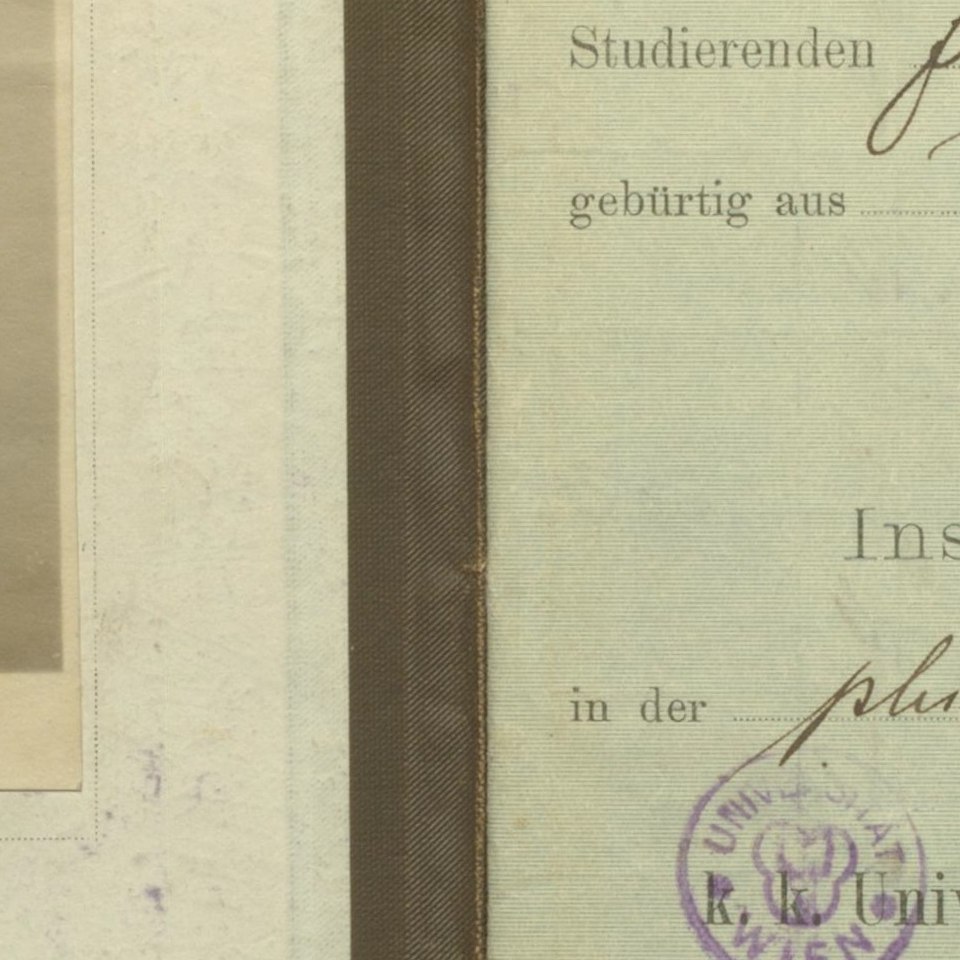 Studierenden
gebürtig aus
Ins
in der phi
UNIVERSITÄT
k. k. Univ
WIEN